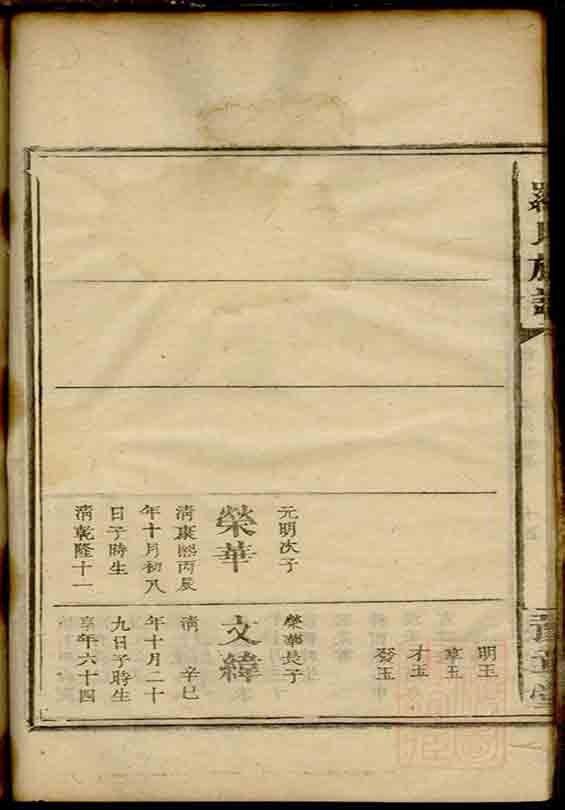 羅氏族譜
元明次子
榮華
清康熙丙辰
年十月初八
日子時生
清乾隆十一
明玉
亨玉
才玉
發玉
榮華長子
文緯
清 辛巳
年十月二十
九日子時生
享年六十四